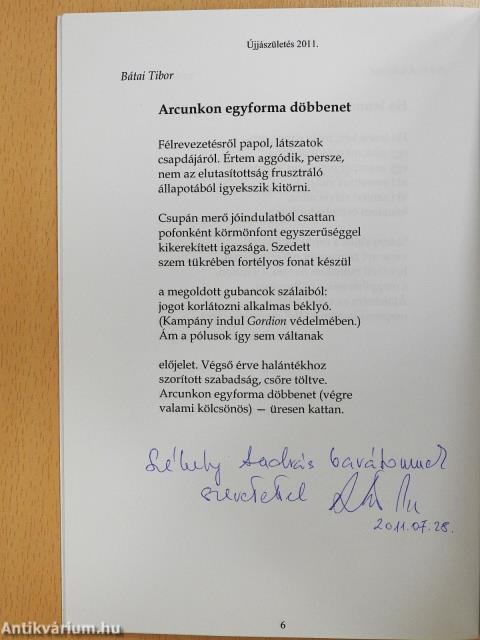 Újjászületés 2011.
Bátai Tibor
Arcunkon egyforma döbbenet
Félrevezetésről papol, látszatok
csapdájáról. Értem aggódik, persze,
nem az elutasítottság frusztráló
állapotából igyekszik kitörni.
Csupán merő jóindulatból csattan
pofonként körmönfont egyszerűséggel
kikerekített igazsága. Szedett
szem tükrében fortélyos fonat készül
a megoldott gubancok szálaiból:
jogot korlátozni alkalmas béklyó.
(Kampány indul Gordion védelmében.)
Ám a pólusok így sem váltanak
előjelet. Végső érve halántékhoz
szorított szabadság, csőre töltve.
Arcunkon egyforma döbbenet (végre
valami kölcsönös) — üresen kattan.
Székely András barátomnak
szeretettel
2011.07.28.
6
Antikvárium.hu